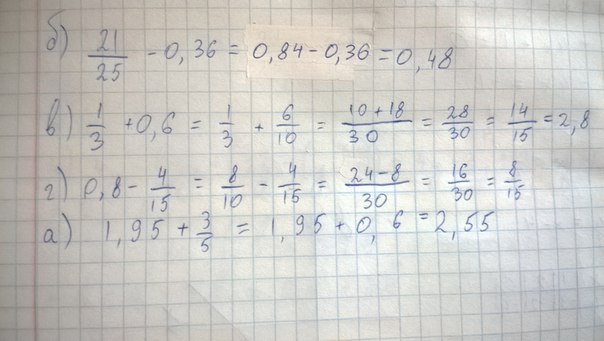 б) 21/25 - 0,36 = 0,84 - 0,36 = 0,48
в) 1/3 + 0,6 = 1/3 + 6/10 = 10+18/30 = 28/30 = 14/15 = 2,8
г) 0,8 - 4/15 = 8/10 - 4/15 = 24-8/30 = 16/30 = 8/15
а) 1,95 + 3/5 = 1,95 + 0,6 = 2,55